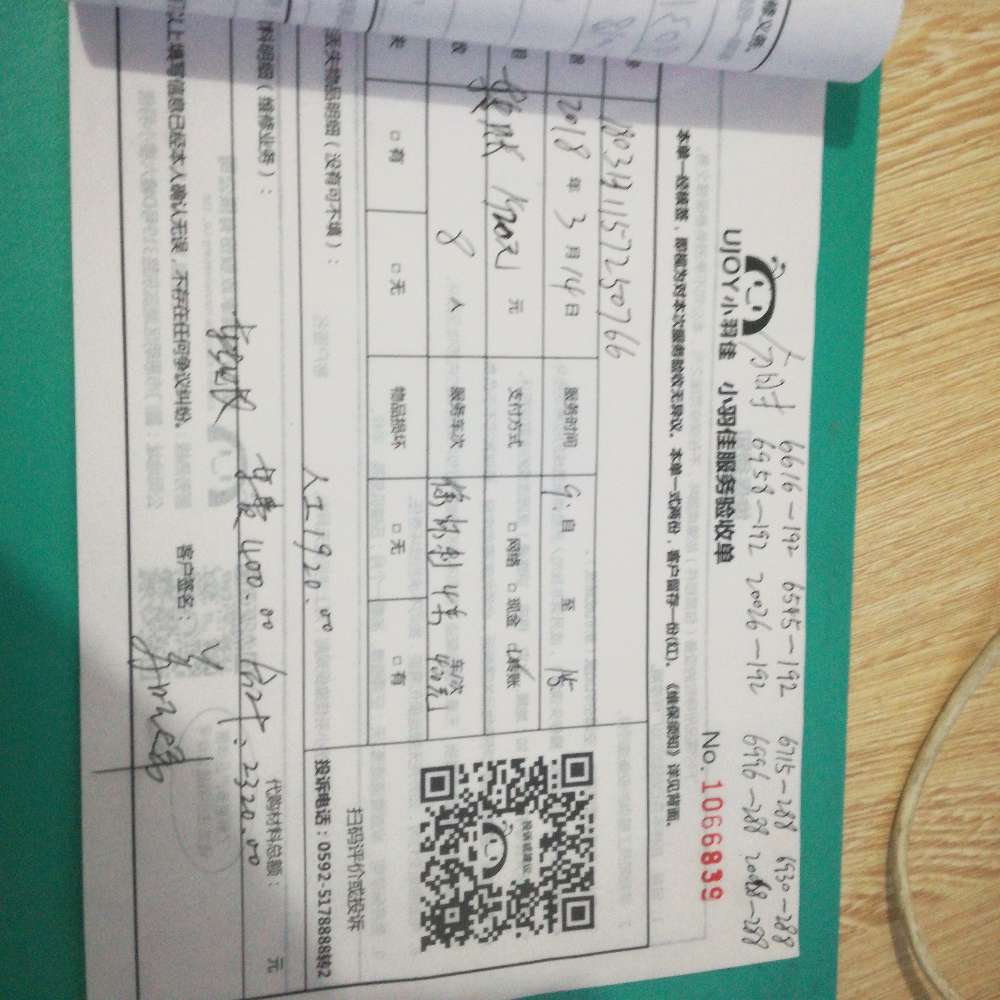 6616-192 6545-192 6715-288 6930-288
6958-192 20026-192 6996-288 2008-288
UJOY小羽佳 小羽佳服务验收单
No. 1066839
本单一经核签，即视为对本次服务验收无异议。本单一式两份，客户留存一份(红)。《维保须知》详见背面。
18031411572250766
2018 年 3 月 14 日 服务时间 9: 自 至 15
元 支付方式 □网络 □现金 ☑转账
8 人 服务车次 车次
□有 □无 物品损坏 □无 □有
扫码评价或投诉
投诉电话：0592-5178888转2
投诉或建议
丢失物品明细（没有可不填）：
人工1920.00
料明细（维修业务）：
车费400.00 合计：2320.00
代购材料总额： 元
以上填写信息已经本人确认无误，不存在任何争议纠纷。 客户签名：